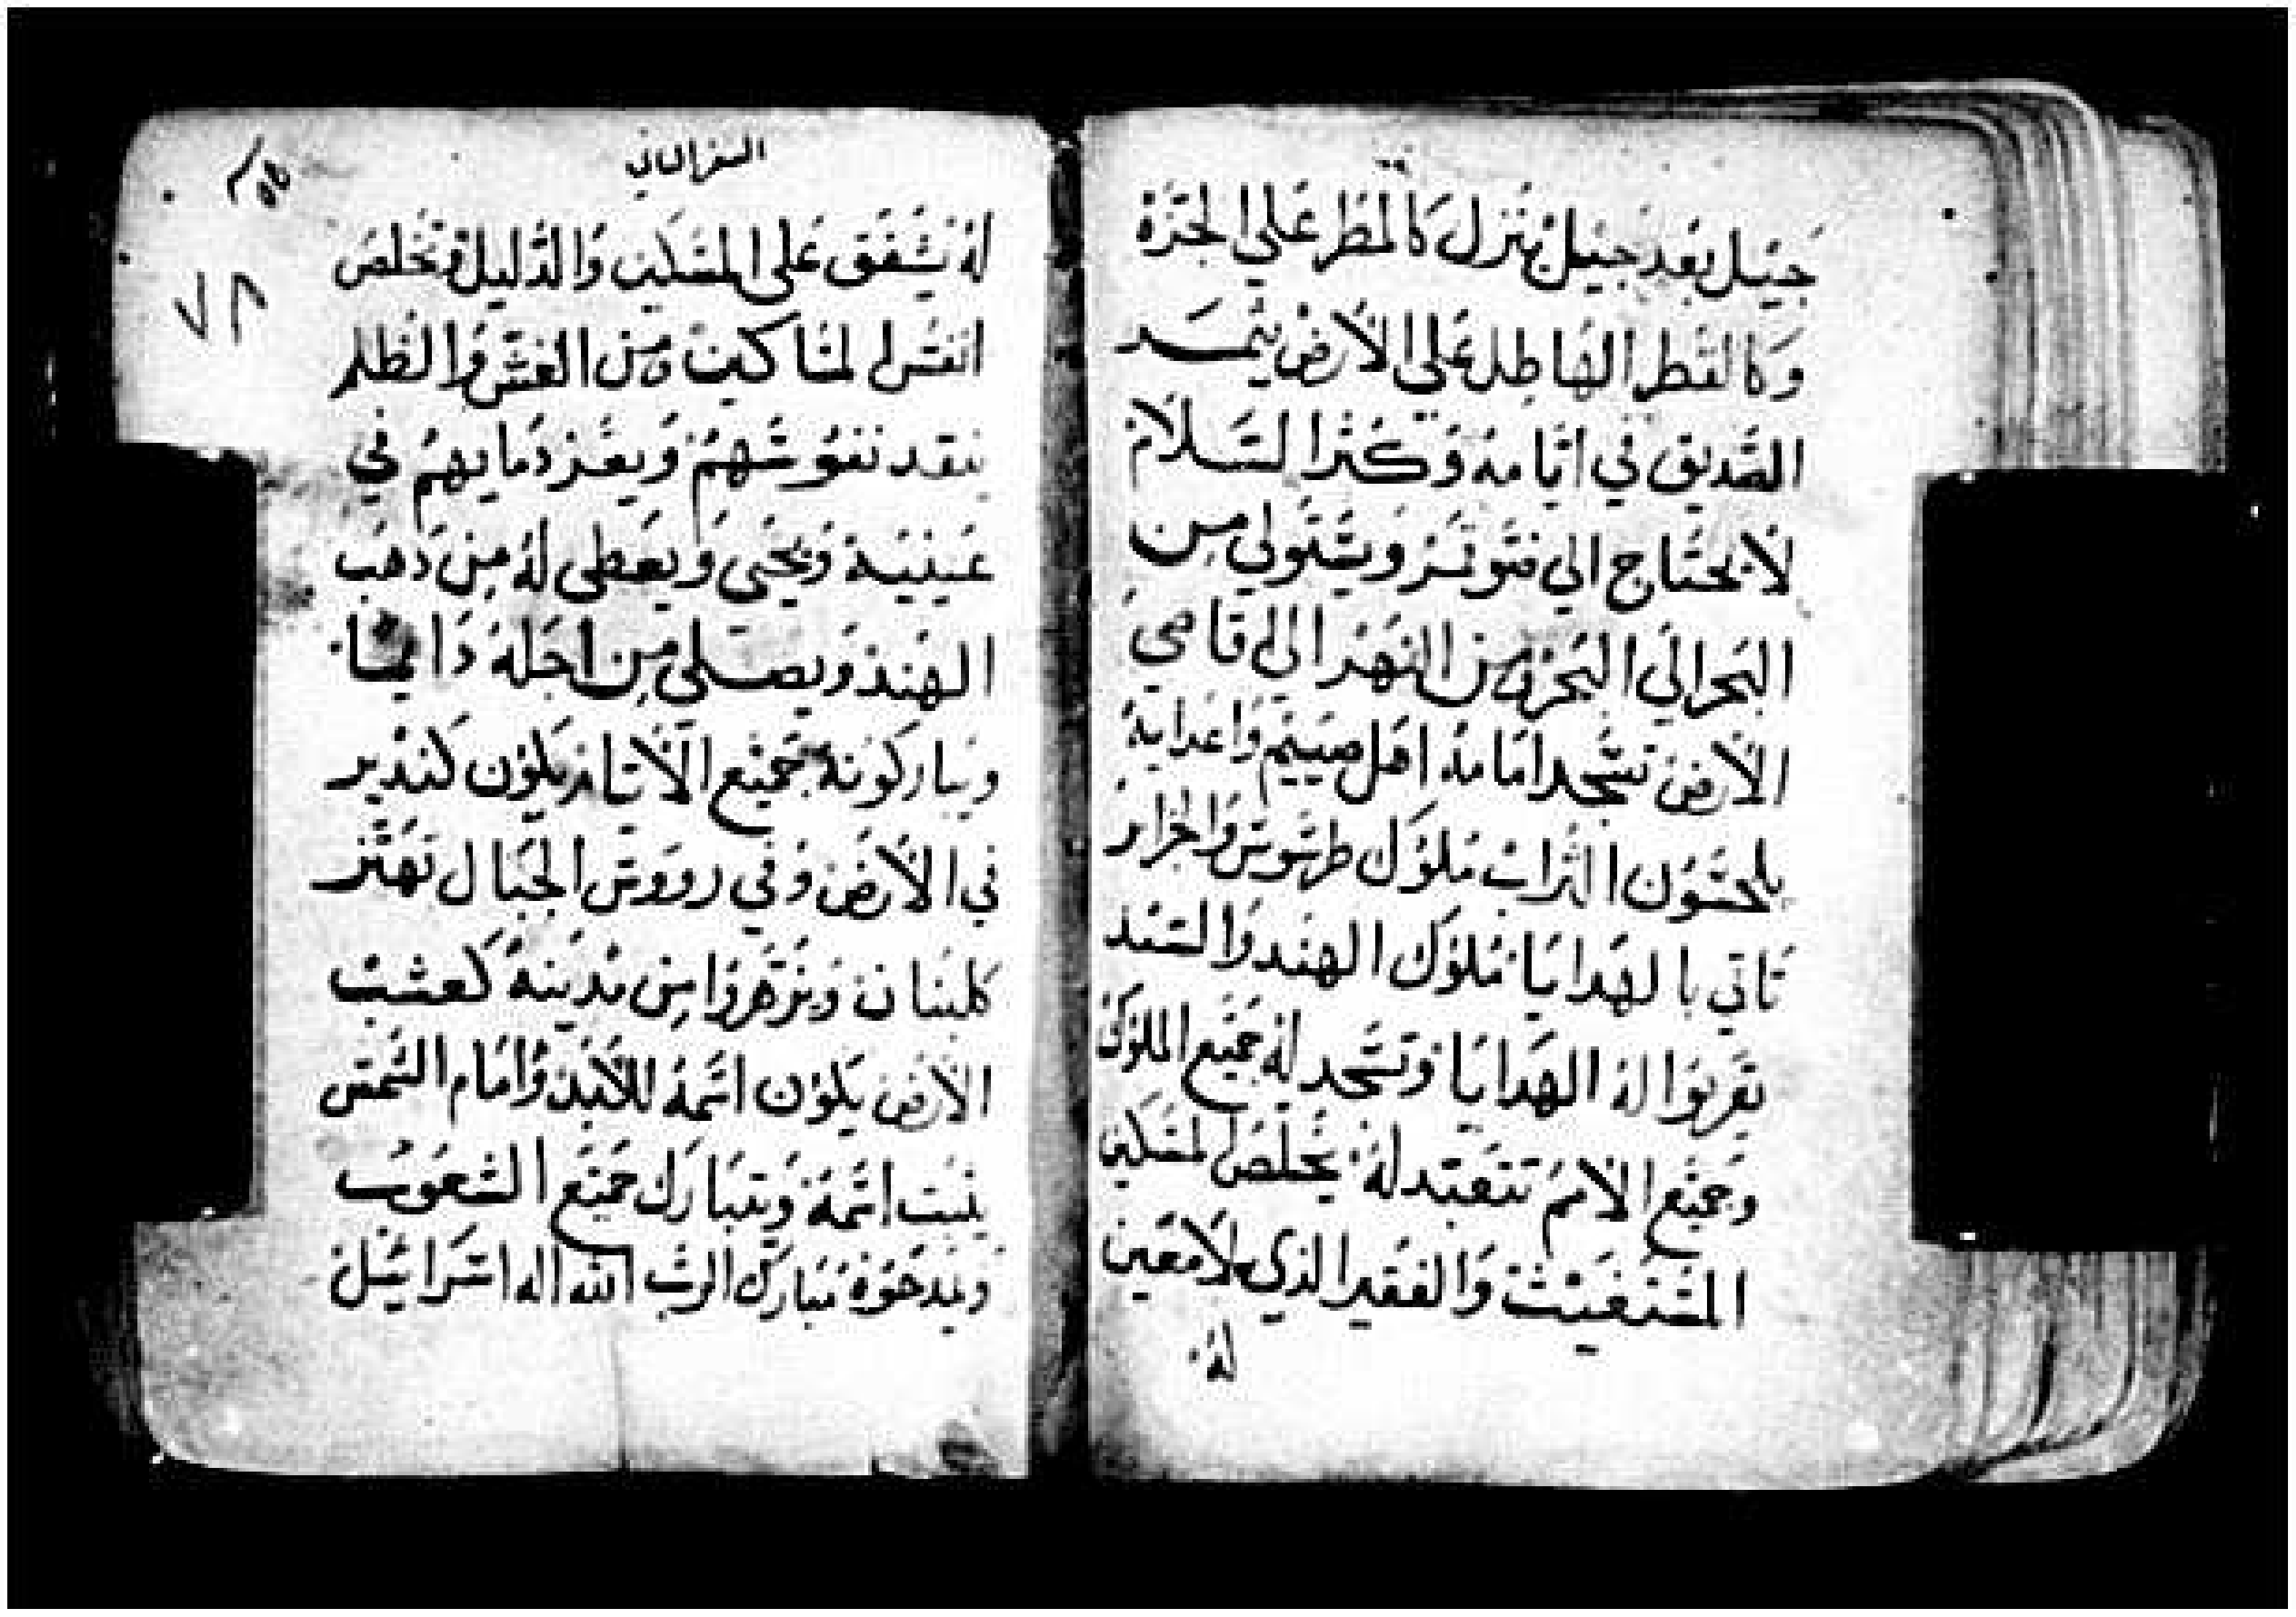 جيل بعد جيل ينزل كالمطر علي الجزة
وكالقطر الهاطل علي الأرض
الصديق في ايامه وكثر السلام
لا يحتاج الي ويستولي من
البحر الي البحر ومن النهر الي قاصي
الأرض تسجد امامه اهل صييم واعدايه
يلحسون التراب ملوك طرسوس والجزاير
تاتي بالهدايا ملوك الهند والسند
يقربوا له الهدايا وتسجد له جميع الملوك
وجميع الامم تتعبد له يخلص المسكين
المستغيث والفقير الذي لا معين
له
السفر الثاني
له يشفق على المسكين والذليل وتخلص
انفس المساكين ومن الغش والظلم
ينقد نفوسهم ويعز دمايهم في
عينيه ويحيى ويعطى له من دهب
الهند ويصلي من اجله دايما
ويباركونه جميع الأيام يكون
في الأرض وفي رووس الجبال تهتز
كلبنان ويزهروا من مدينة كعشب
الأرض يكون اسمه للأبد وامام الشمس
يثبت اسمه ويتبارك جميع الشعوب
ويمدحوه مبارك الرب الله اله اسراييل